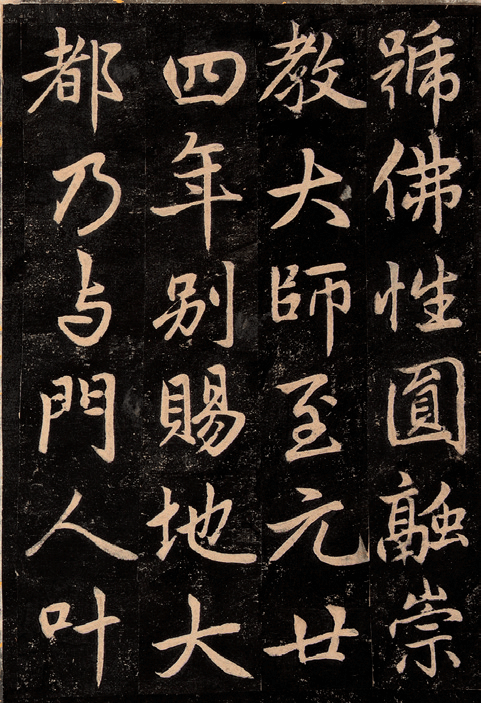 號佛性圓融崇
教大師至元廿
四年别賜地大
都乃与門人叶